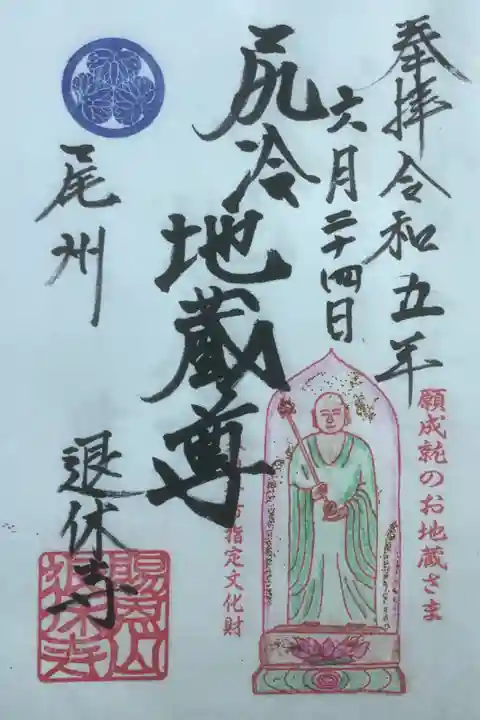 奉拝令和五年
六月二十四日
尻冷地蔵尊
尾州
退休寺
願成就のお地蔵さま
市指定文化財